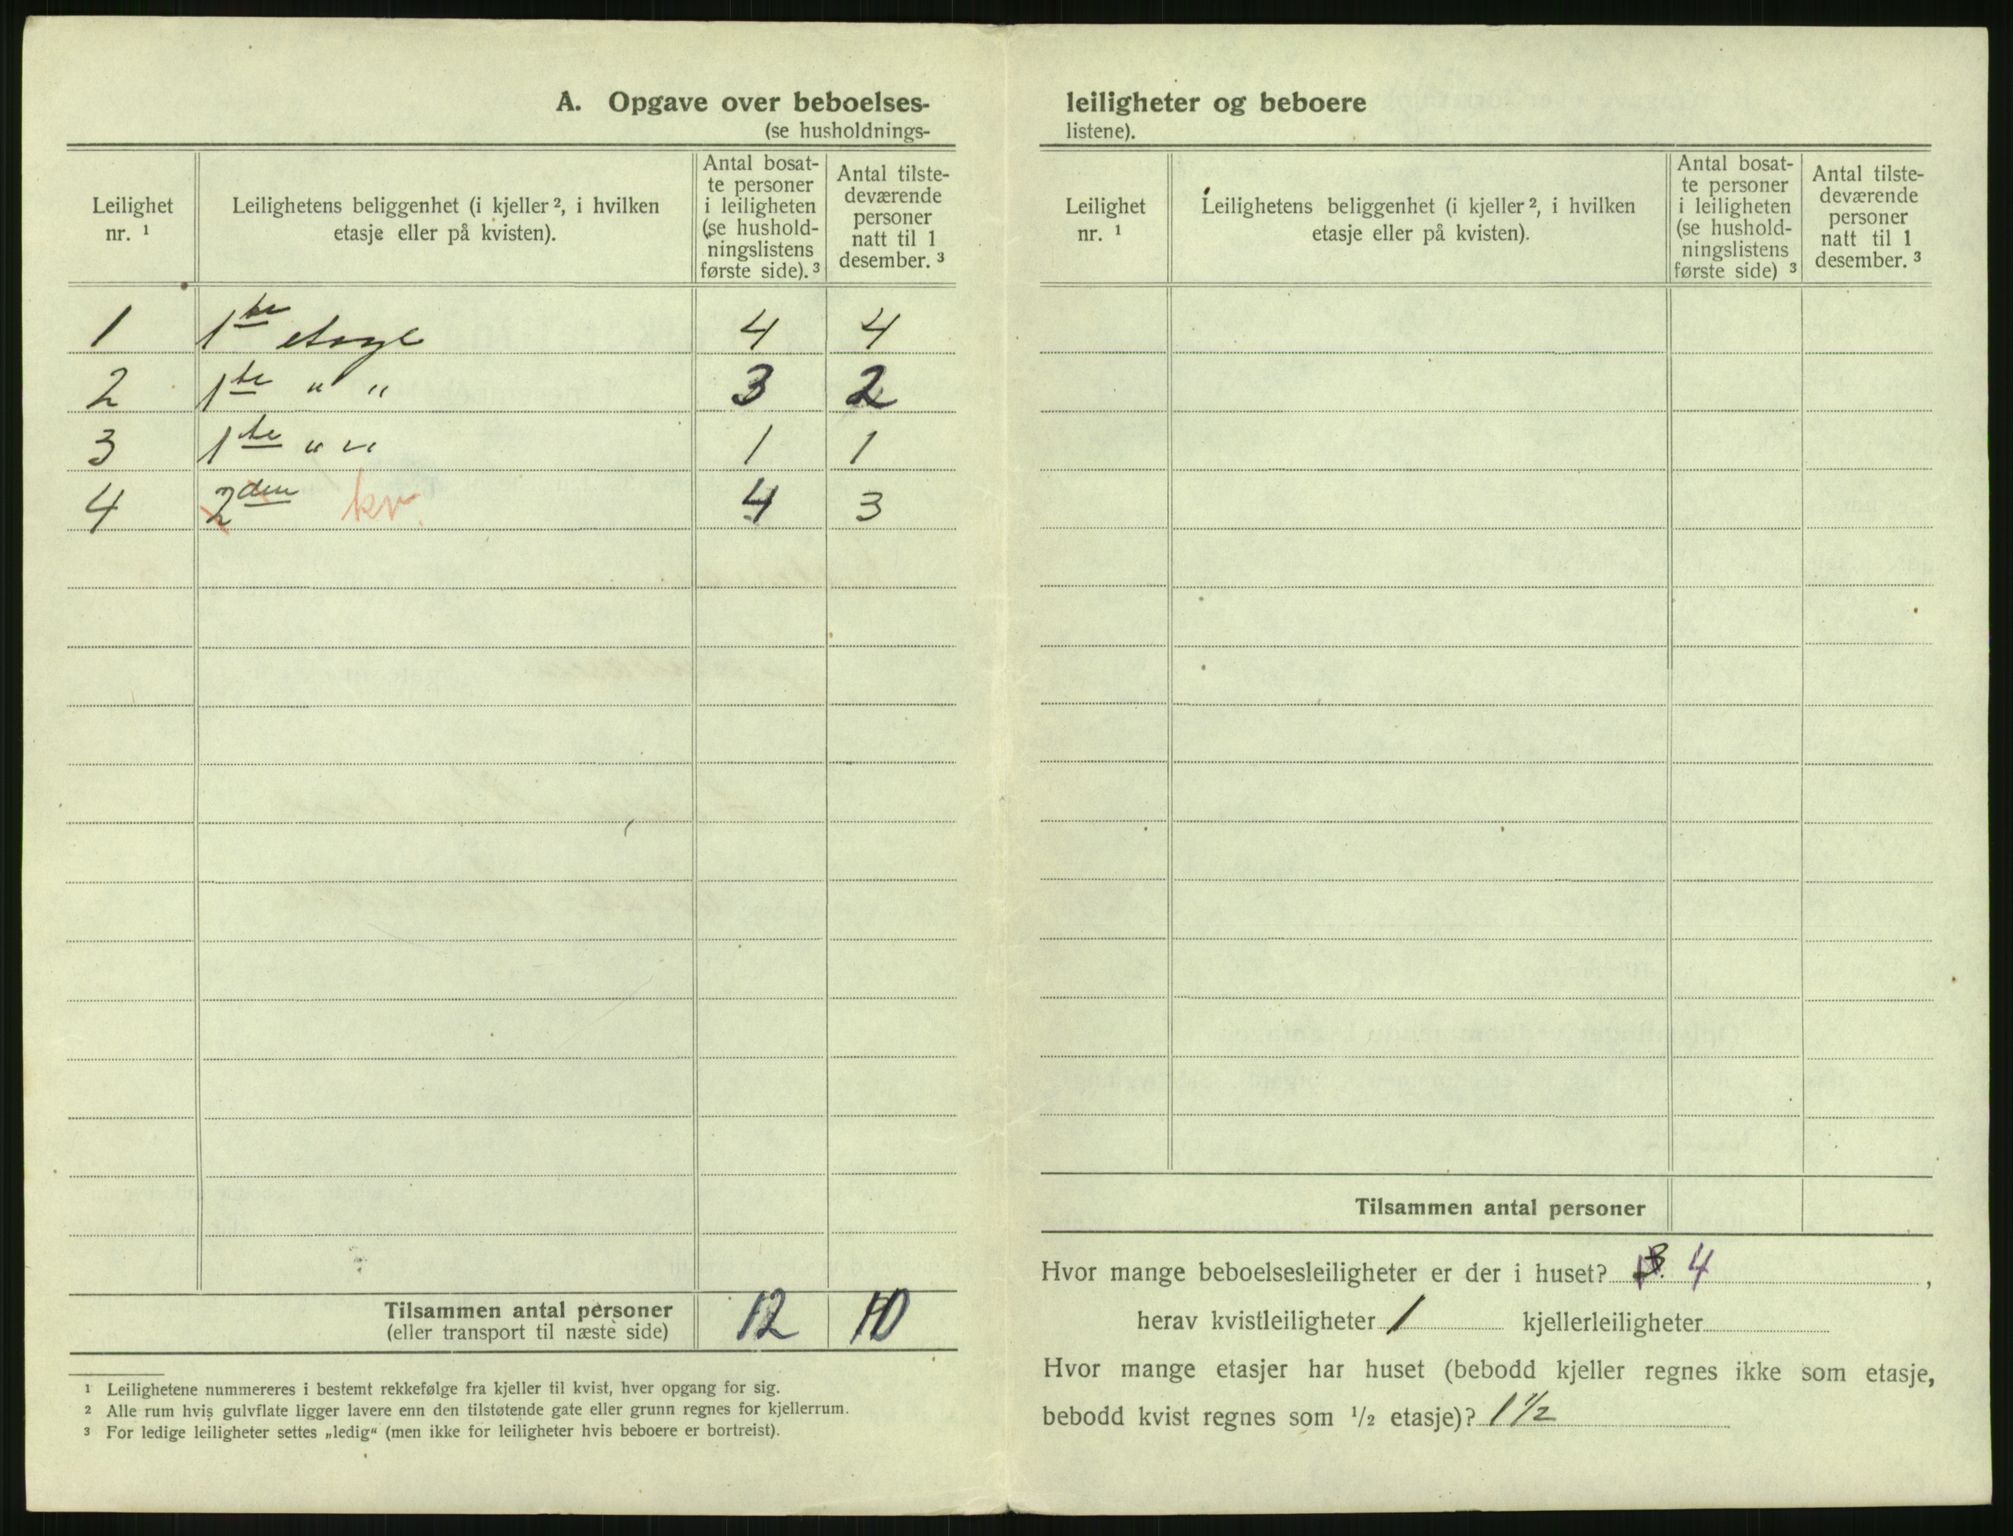 A. Opgave over beboelses-
(se husholdnings-
Leilighet nr. ¹
Leilighetens beliggenhet (i kjeller ², i hvilken etasje eller på kvisten).
Antal bosat-
te personer
i leiligheten
(se hushold-
ningslistens
første side). ³
Antal tilste-
deværende
personer
natt til 1
desember. ³
1 1ste etage 4 4
2 1ste " " 3 2
3 1ste " " 1 1
4 2den kv. 4 3
Tilsammen antal personer 12 10
(eller transport til næste side)
¹ Leilighetene nummereres i bestemt rekkefølge fra kjeller til kvist, hver opgang for sig.
² Alle rum hvis gulvflate ligger lavere enn den tilstøtende gate eller grunn regnes for kjellerrum.
³ For ledige leiligheter settes „ledig“ (men ikke for leiligheter hvis beboere er bortreist).
leiligheter og beboere
listene).
Leilighet nr. ¹
Leilighetens beliggenhet (i kjeller ², i hvilken etasje eller på kvisten).
Antal bosat-
te personer
i leiligheten
(se hushold-
ningslistens
første side) ³
Antal tilste-
deværende
personer
natt til 1
desember. ³
Tilsammen antal personer
Hvor mange beboelsesleiligheter er der i huset? 3. 4,
herav kvistleiligheter 1 kjellerleiligheter
Hvor mange etasjer har huset (bebodd kjeller regnes ikke som etasje,
bebodd kvist regnes som ½ etasje)? 1 ½